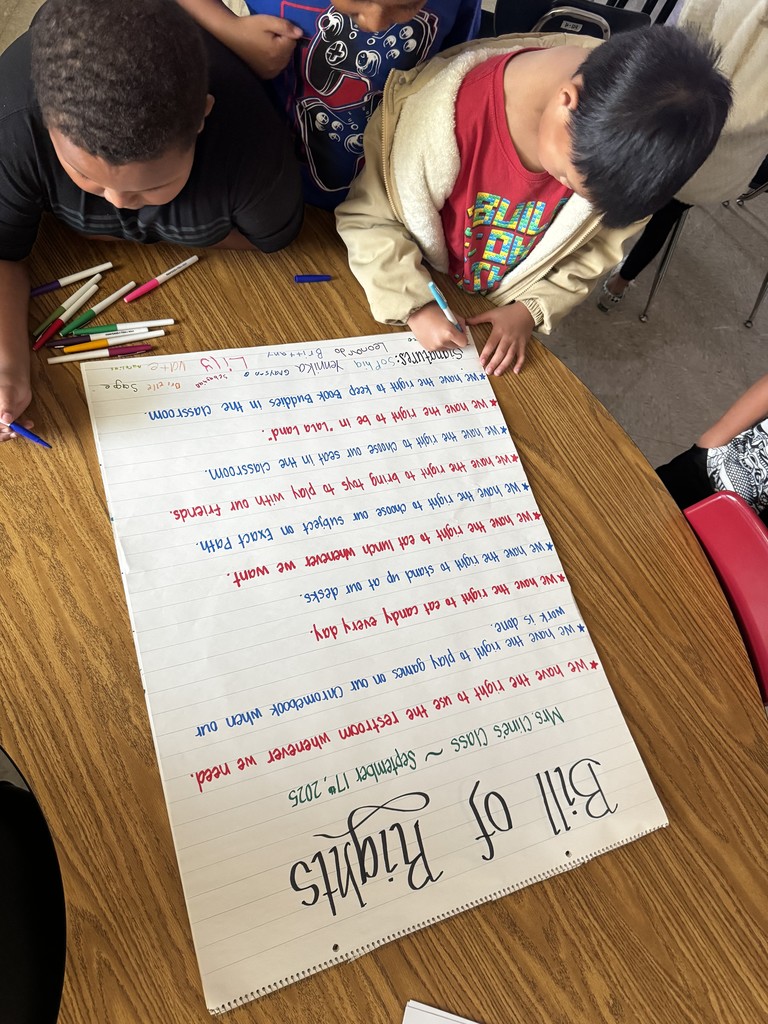 Bill of Rights
Mrs. Cline's Class ~ September 17th, 2025
★ We have the right to use the restroom whenever we need.
★ We have the right to play games on our Chromebook when our
work is done.
★ We have the right to eat candy every day.
★ We have the right to stand up at our desks.
★ We have the right to eat lunch whenever we want.
★ We have the right to choose our subject on Exact Path.
★ We have the right to bring toys to play with our friends.
★ We have the right to choose our seat in the classroom.
★ We have the right to be in "LaLa Land".
★ We have the right to keep Book Buddies in the classroom.
Signatures: Sophia Yennika Grayson Lily Kate
Leonardo Brittany
Sage